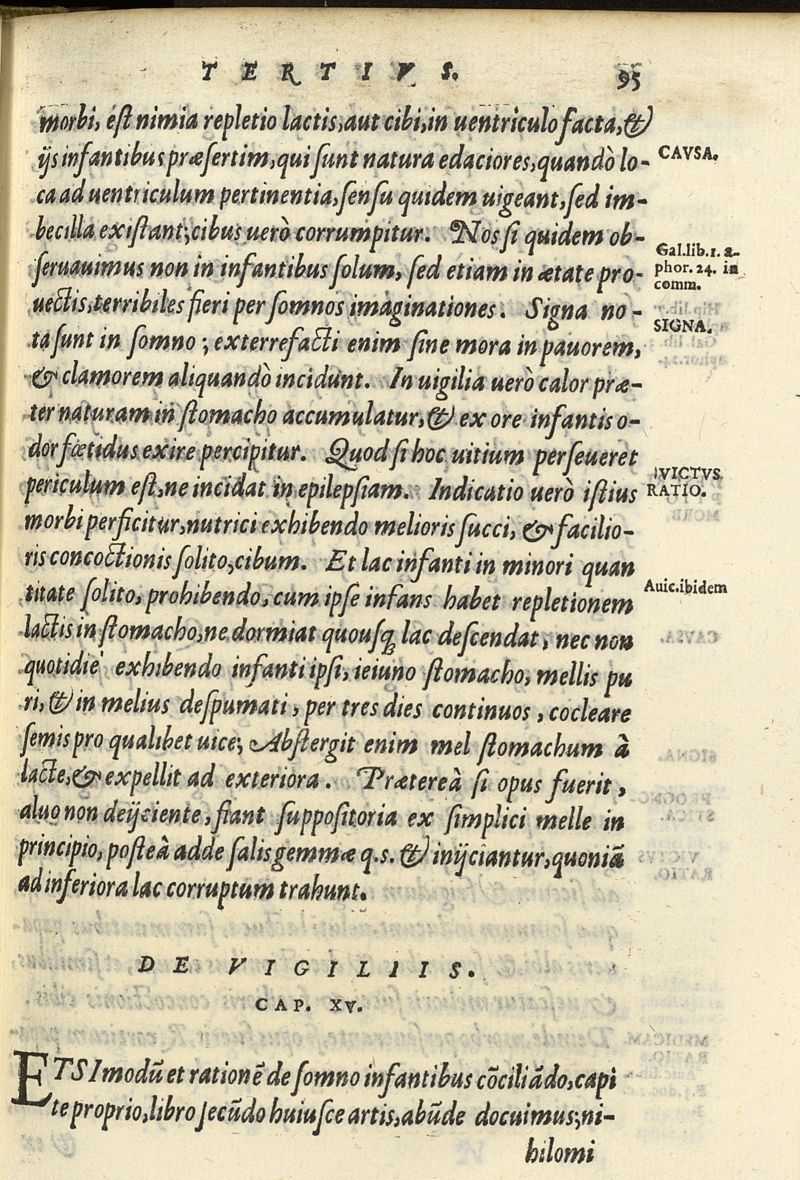 TERTIVS.
95
morbi, est nimia repletio lactis, aut cibi, in uentriculo facta, &
ijs infantibus præsertim, qui sunt natura edaciores, quandò lo-
CAVSA.
ca ad uentriculum pertinentia, sensu quidem uigeant, sed im-
becilla existant; cibus uerò corrumpitur. Nos si quidem ob-
Gal. lib. 1. a-
phor. 24. in
comm.
seruauimus non in infantibus solum, sed etiam in ætate pro-
uectis, terribiles fieri per somnos imaginationes. Signa no-
SIGNA.
ta sunt in somno; exterrefacti enim sine mora in pauorem,
& clamorem aliquandò incidunt. In uigilia uerò calor præ-
ter naturam in stomacho accumulatur, & ex ore infantis o-
dor fœtidus exire percipitur. Quod si hoc uitium perseueret
VICTVS
RATIO.
periculum est, ne incidat in epilepsiam. Indicatio uerò istius
morbi perficitur, nutrici exhibendo melioris succi, & facilio-
ris concoctionis solito, cibum. Et lac infanti in minori quan
Auic. ibidem
titate solito, prohibendo, cum ipse infans habet repletionem
lactis in stomacho, ne dormiat quousq; lac descendat, nec non
quotidie exhibendo infanti ipsi, ieiuno stomacho, mellis pu
ri, & in melius despumati, per tres dies continuos, cocleare
semis pro qualibet uice; Abstergit enim mel stomachum à
lacte, & expellit ad exteriora. Prætereà si opus fuerit,
aluo non deijciente, fiant suppositoria ex simplici melle in
principio, posteà adde salis gemmæ q.s. & inijciantur, quoniā
ad inferiora lac corruptum trahunt.
DE VIGILIIS.
CAP. XV.
ETSI modū et rationē de somno infantibus cōciliādo, capi
te proprio, libro secūdo huiusce artis, abūde docuimus; ni-
hilomi